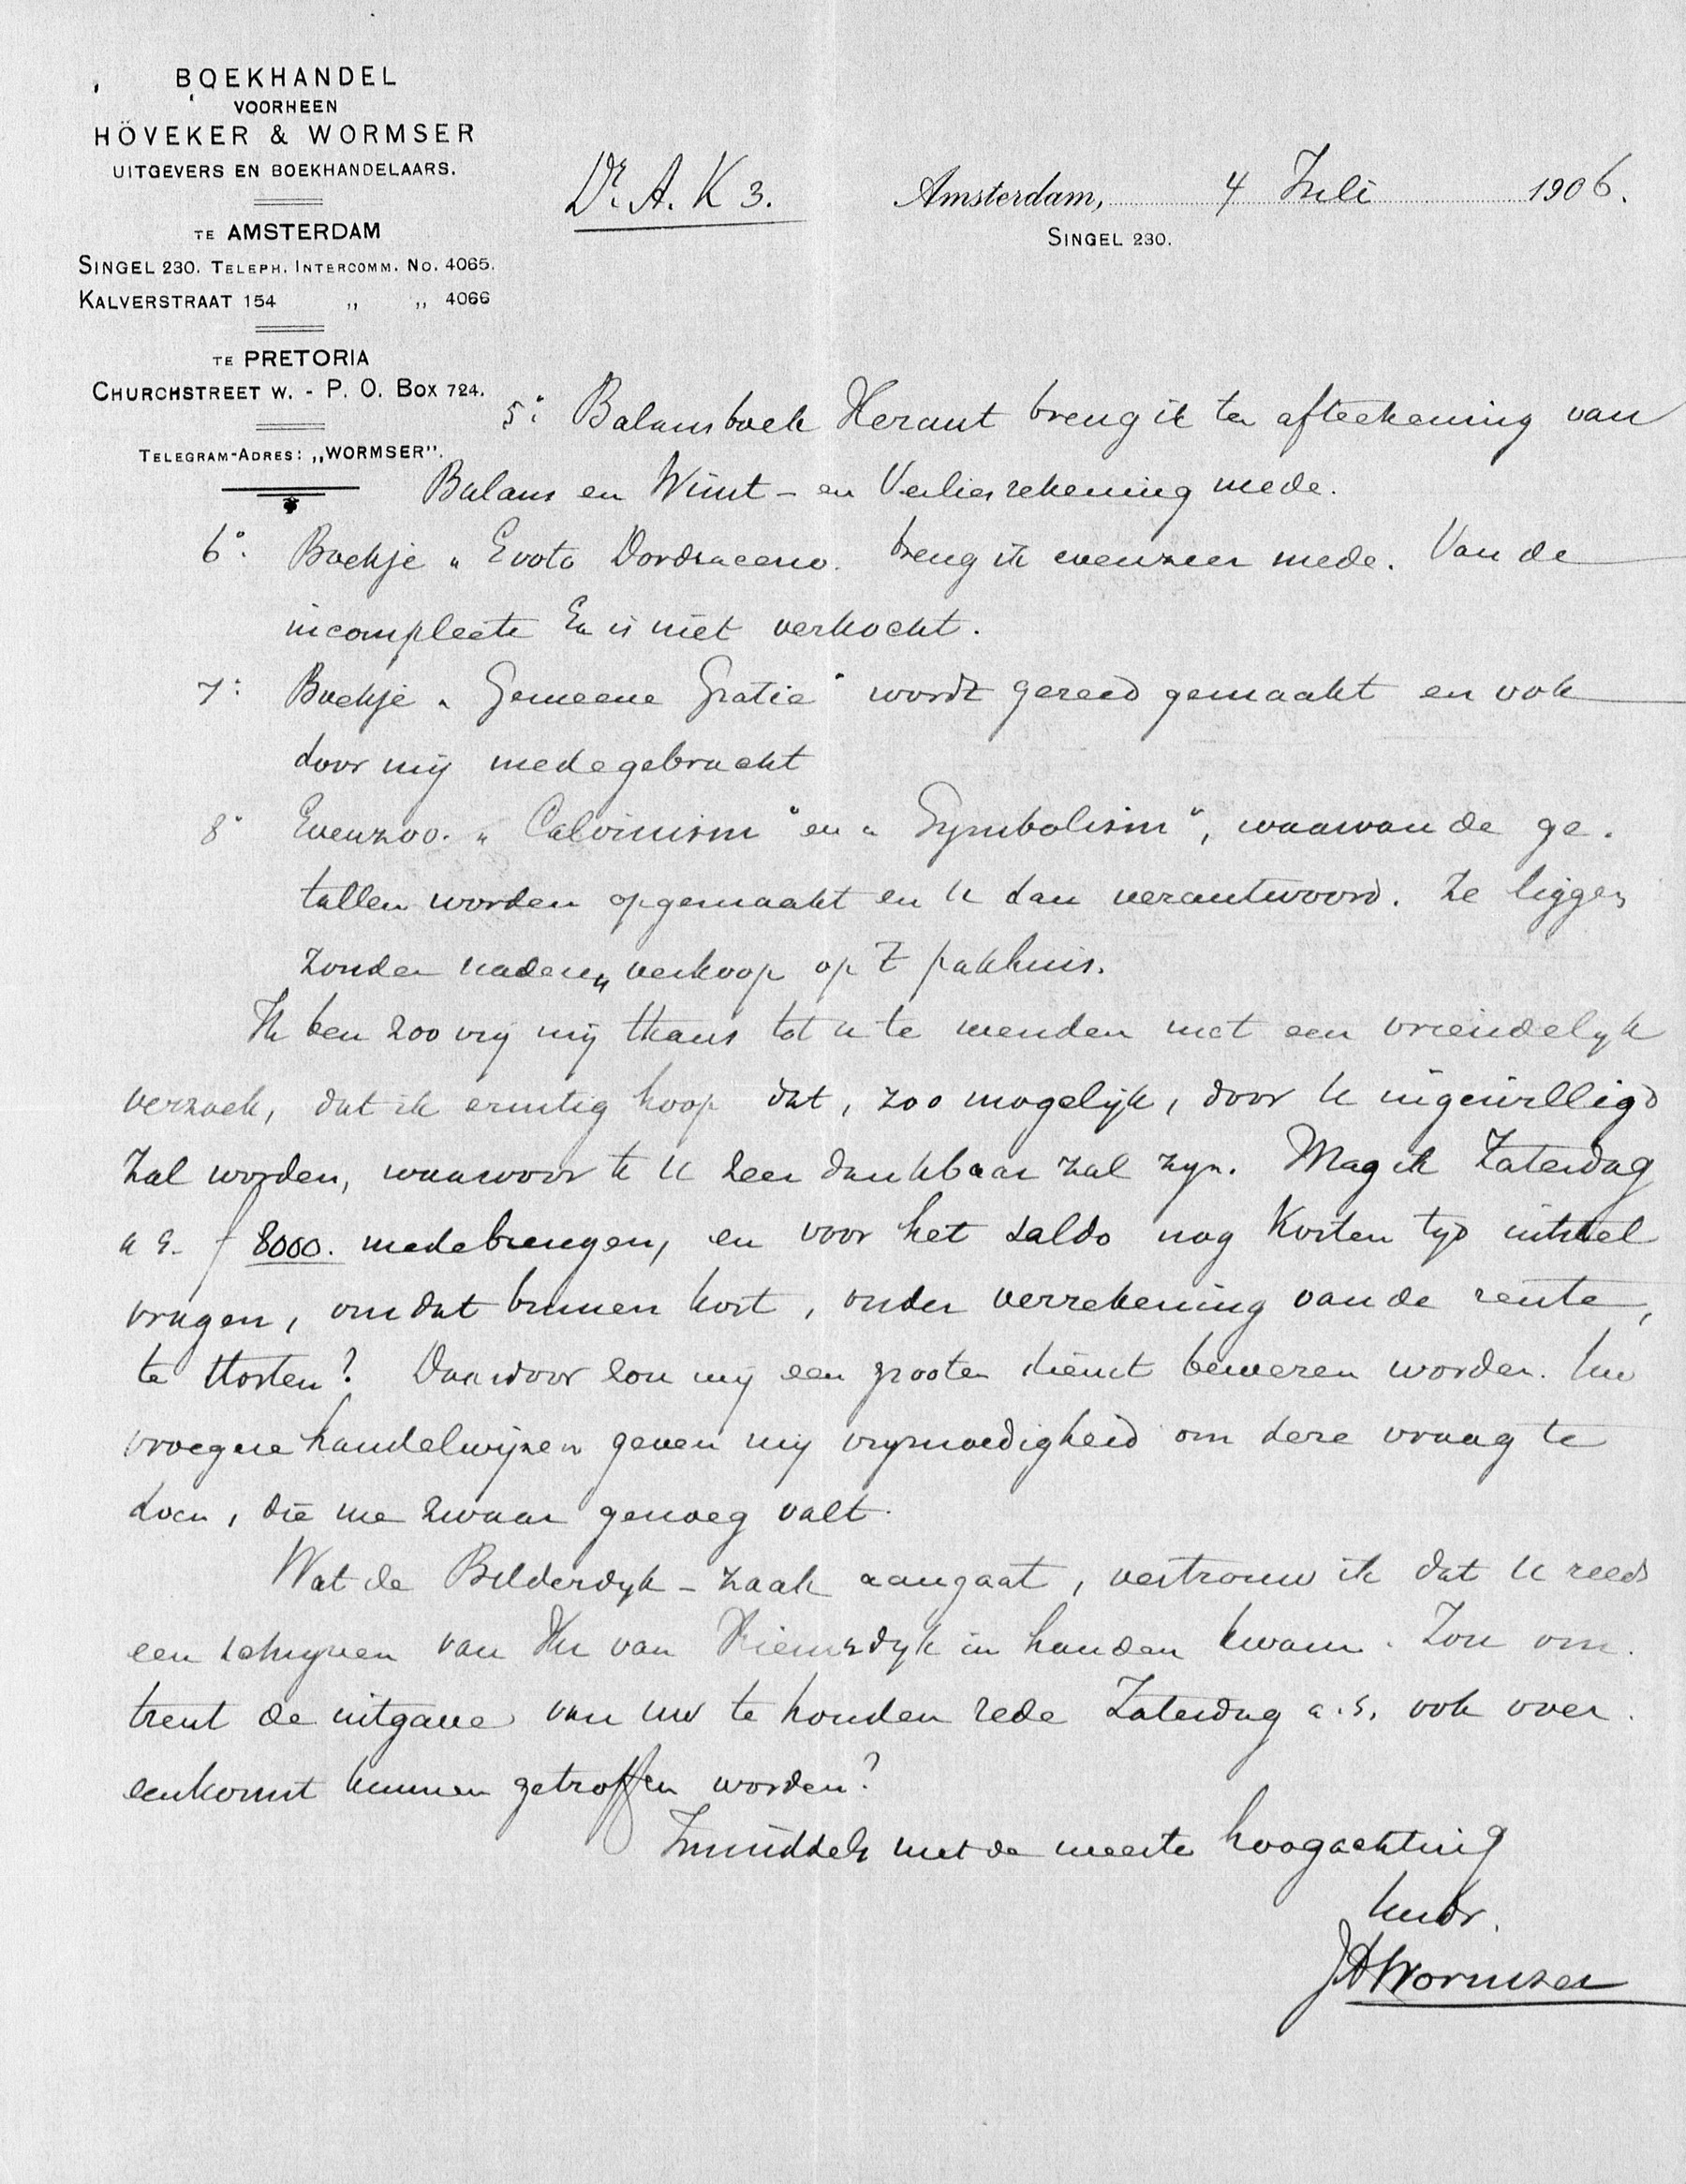 BOEKHANDEL
VOORHEEN
HÖVEKER & WORMSER
UITGEVERS EN BOEKHANDELAARS.
TE AMSTERDAM
SINGEL 230. TELEPH. INTERCOMM. No. 4065.
KALVERSTRAAT 154 „ „ 4066
TE PRETORIA
CHURCHSTREET W. - P. O. BOX 724.
TELEGRAM-ADRES: „WORMSER”.
Dr. A. K 3.
Amsterdam, 4 Juli 1906.
SINGEL 230.
5°. Balansboek Heraut breng ik ter afteekening van
Balans en Winst- en Verliesrekening mede.
6°. Boekje „ E voto Dordraceno. breng ik evenzeer mede. Van de
incompleete Ex is niet verkocht.
7°. Boekje „ Gemeene Gratie" wordt gereed gemaakt en ook
door mij medegebracht
8° Evenzoo. „ Calvinism" en „ Symbolism", waarvan de ge-
tallen worden opgemaakt en U dan verantwoord. Ze liggen
zonder naderen verkoop op 't pakhuis.
Ik ben zoo vrij mij thans tot u te wenden met een vriendelijk
verzoek, dat ik ernstig hoop dat, zoo mogelijk, door U ingewilligd
zal worden, waarvoor ik U zeer dankbaar zal zijn. Mag ik Zaterdag
a s. f 8000. medebrengen, en voor het saldo nog korten tijd uitstel
vragen, om dat binnen kort, onder verrekening van de rente,
te storten? Daardoor zou mij een grooten dienst bewezen worden. Uw
vroegere handelwijzen geven mij vrijmoedigheid om deze vraag te
doen, die me zwaar genoeg valt.
Wat de Bilderdijk-zaak aangaat, vertrouw ik dat U reeds
een schrijven van Hr van Riemsdijk in handen kwam. Zou om-
trent de uitgave van uw te houden rede Zaterdag a.s. ook over-
eenkomst kunnen getroffen worden?
Inmiddels met de meeste hoogachting
Uw dr.
JAWormser